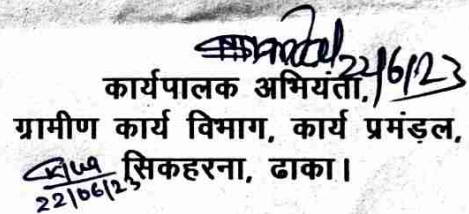 22/6/23
कार्यपालक अभियंता,
ग्रामीण कार्य विभाग, कार्य प्रमंडल,
सिकहरना, ढाका।
22/06/23